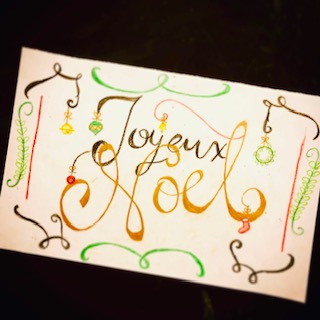 Joyeux
Noel